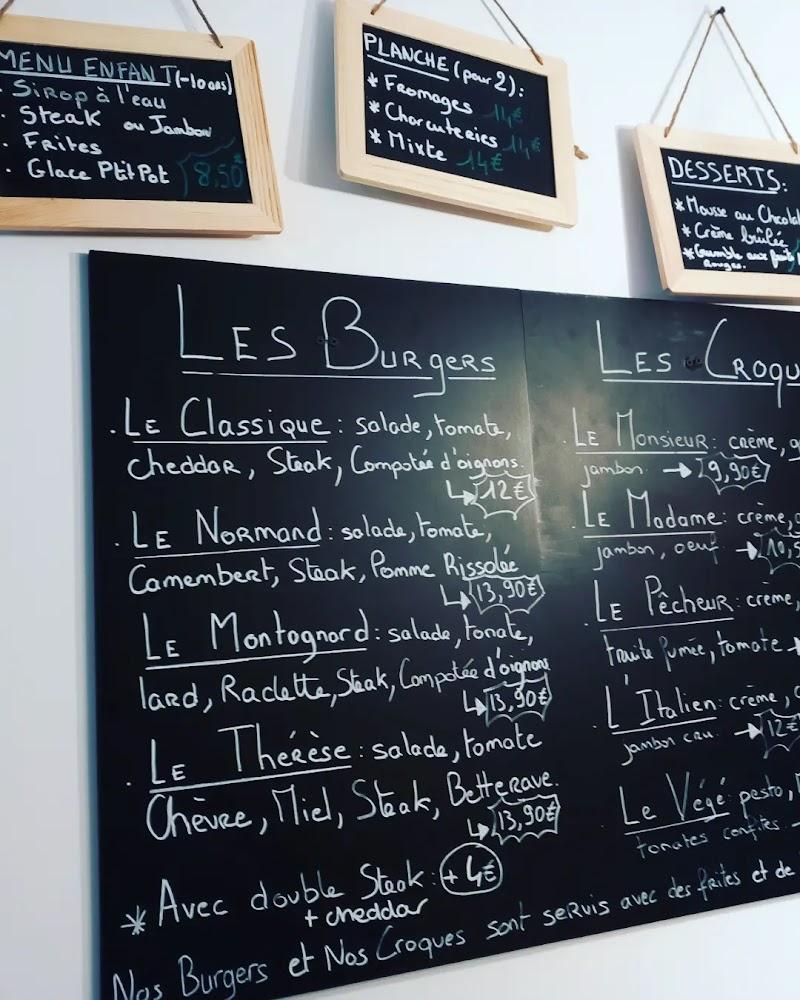 MENU ENFANT (-10ans)
. Sirop à l'eau
. Steak ou Jambon
. Frites
. Glace P'tit Pot 8,50€
PLANCHE (pour 2):
* Fromages 14€
* Charcuteries 14€
* Mixte 14€
DESSERTS:
* Mousse au Chocolat
* Crème brûlée
* Crumble aux fruits
rouges.
LES BURGERS
. LE Classique: salade, tomate,
cheddar, Steak, Compotée d'oignons.
12€
. LE NORMAND: salade, tomate,
Camembert, Steak, Pomme Rissolée
13,90€
LE Montagnard: salade, tomate,
lard, Raclette, Steak, Compotée d'oignons
13,90€
. LE Thérèse: salade, tomate
Chèvre, Miel, Steak, Betterave.
13,90€
* Avec double Steak: +4€
+ cheddar
LES CROQU
. LE Monsieur: crème,
jambon. → 9,90€
LE Madame: crème,
jambon, oeuf → 10,5
. LE Pêcheur: crème,
truite fumée, tomate →
. L'Italien: crème,
jambon cru. → 12€
Le Végé: pesto,
tomates confites →
Nos Burgers et Nos Croques sont servis avec des frites et de